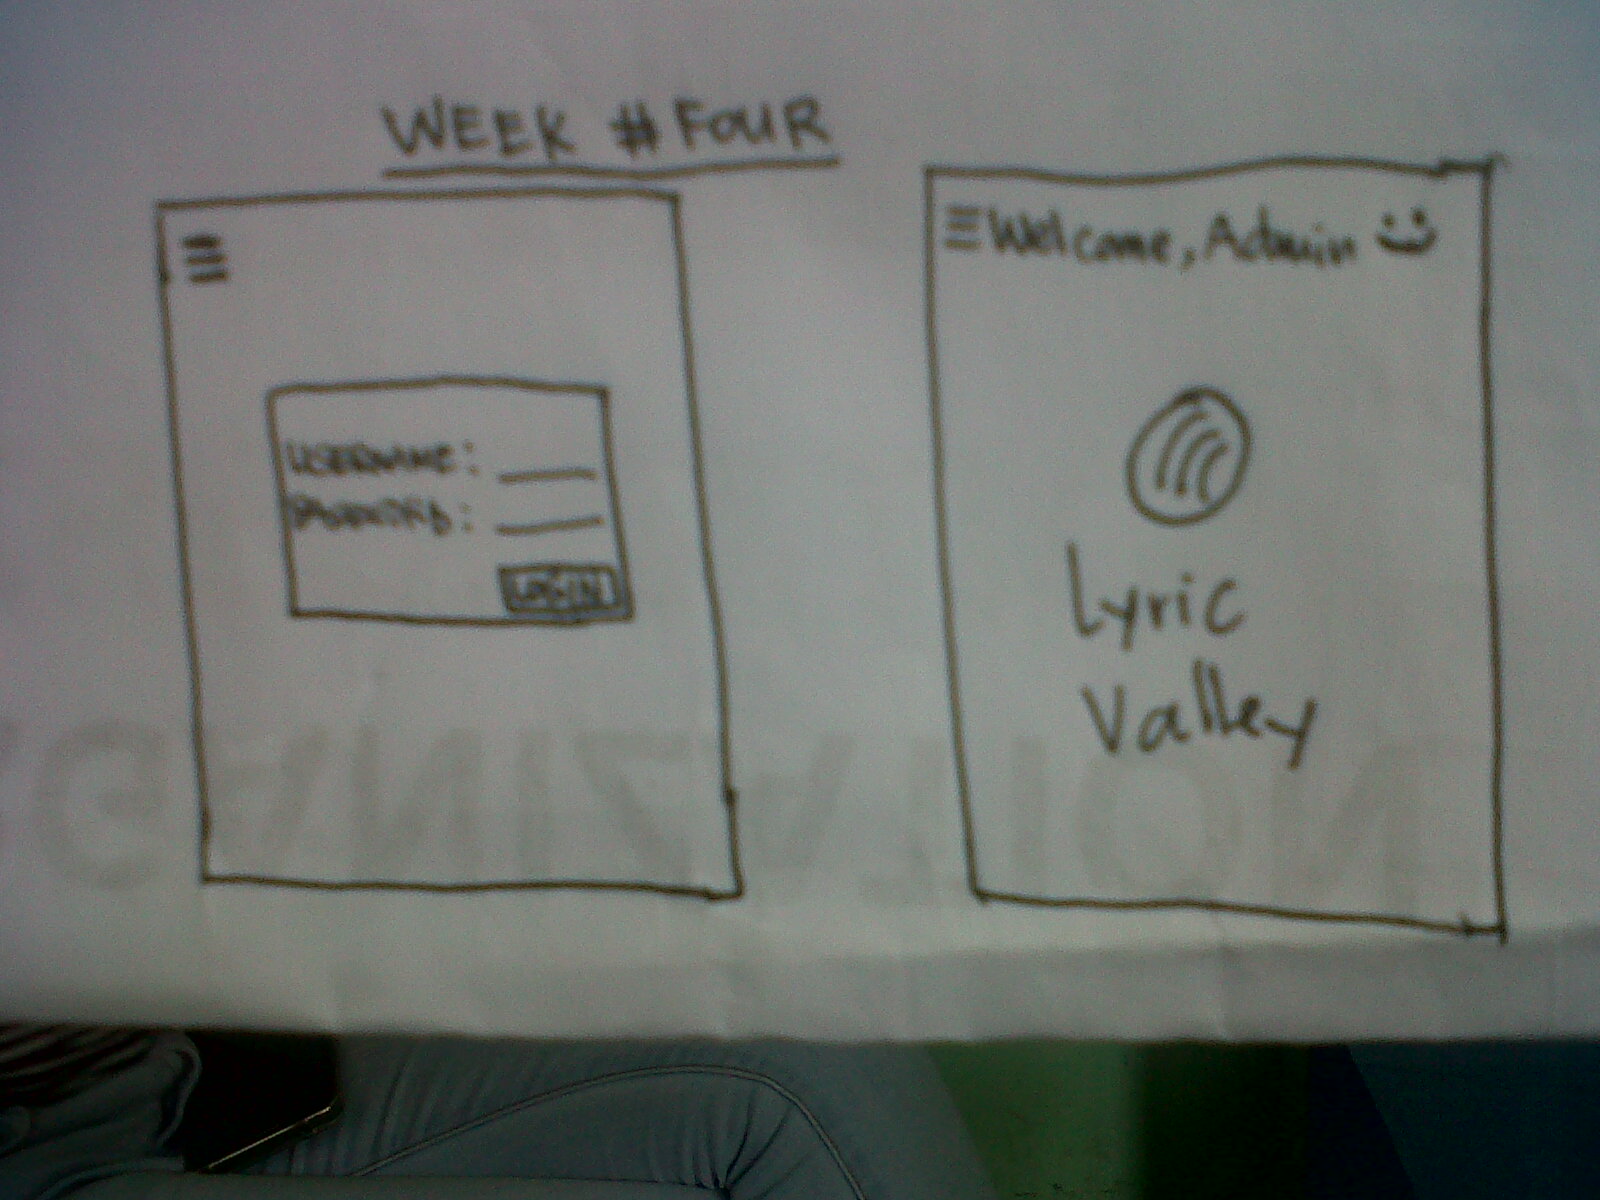 WEEK # FOUR
USERNAME:
PASSWORD:
LOGIN
Welcome, Admin
Lyric
Valley